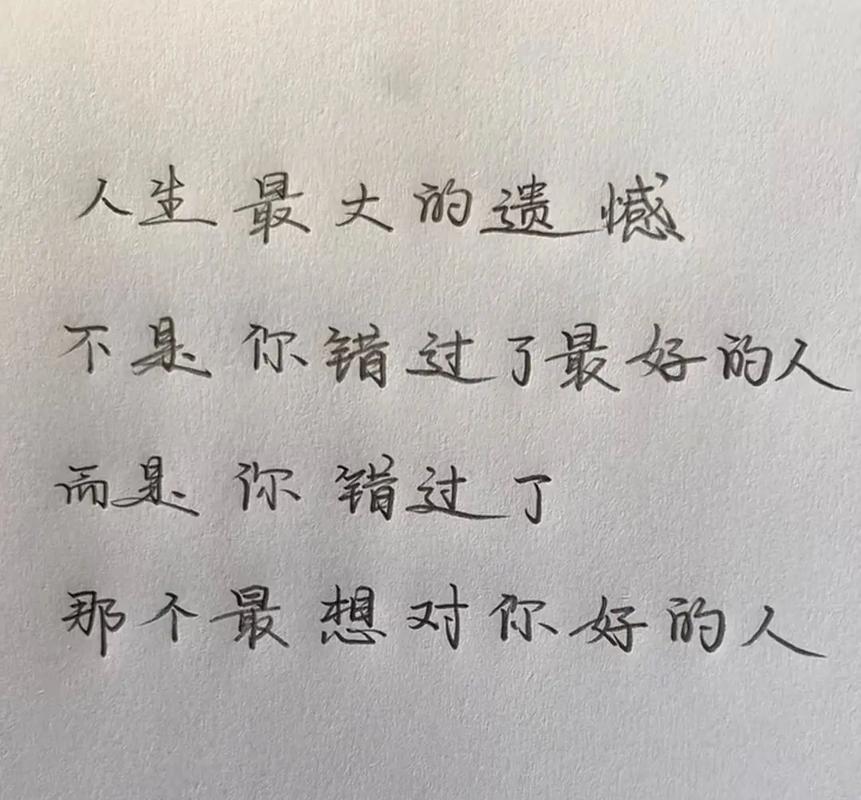 人生最大的遗憾
不是你错过了最好的人
而是你错过了
那个最想对你好的人